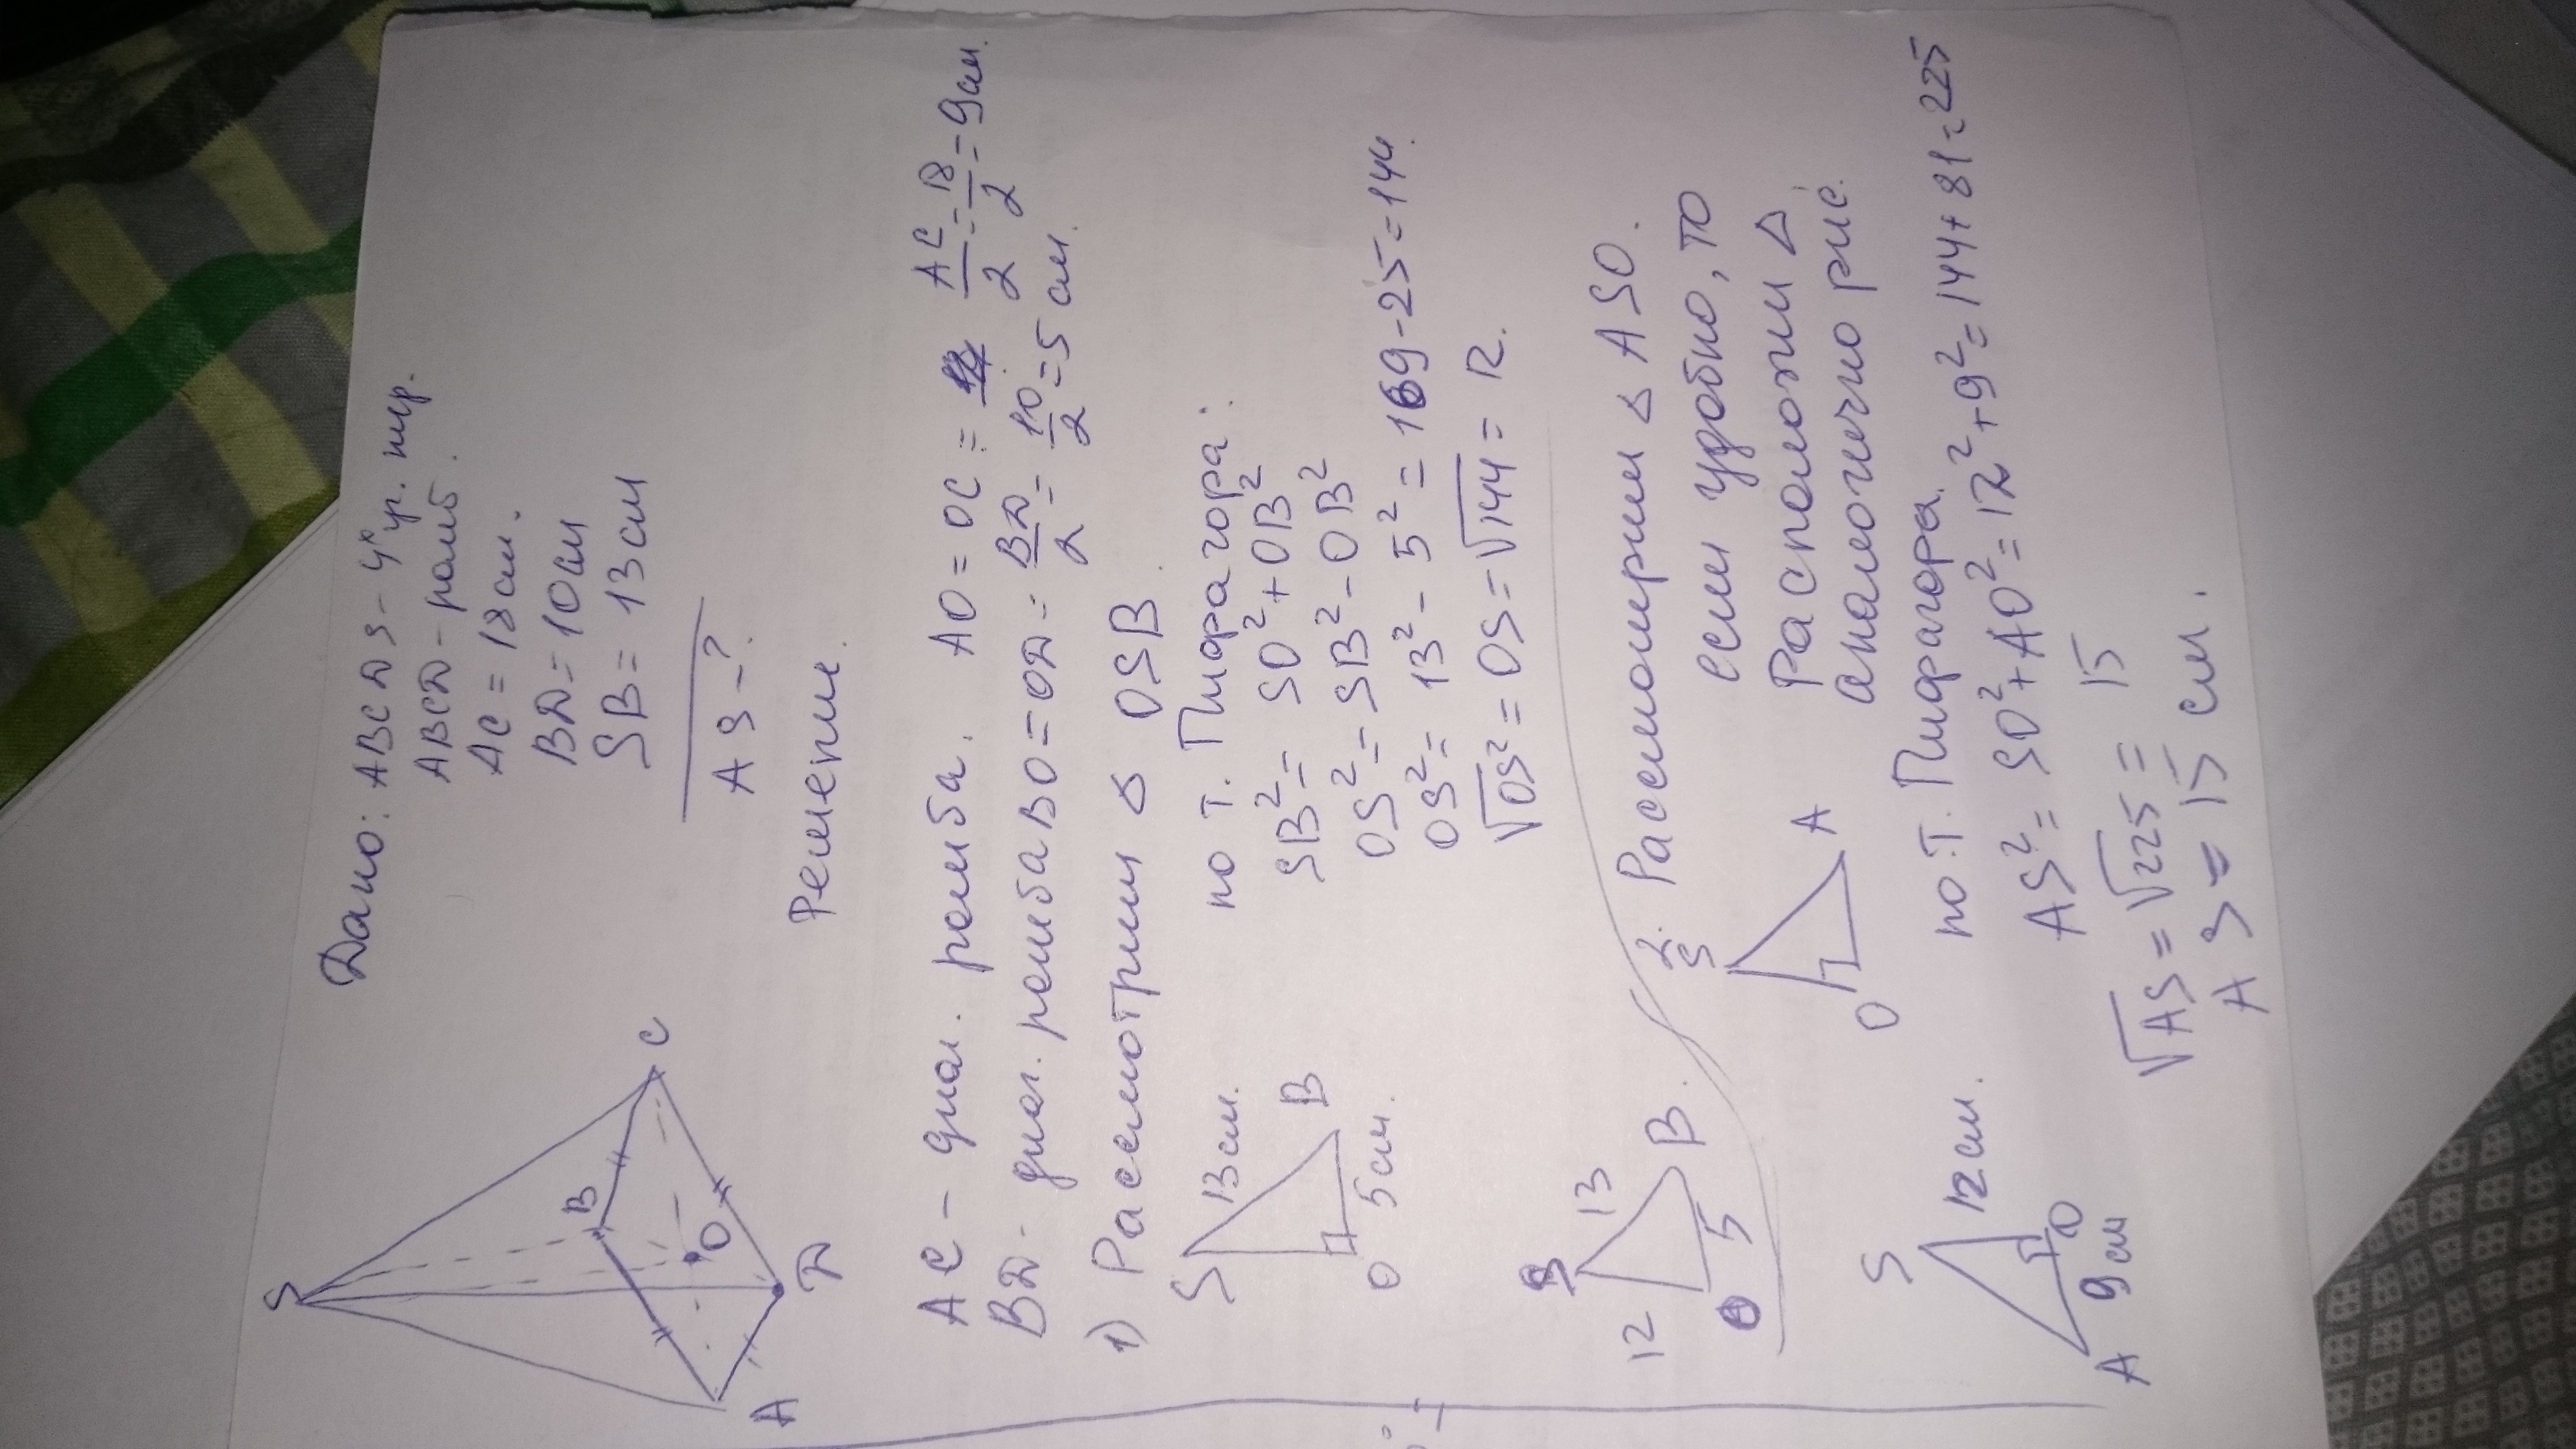 S
B
C
O
A
D
Дано: ABCDS - 4х уг. пир.
ABCD - ромб.
AC = 18 см.
BD = 10 см
SB = 13 см
AS - ?
Решение.
AC - диаг. ромба. AO = OC = AC/2 = 18/2 = 9 см.
BD - диаг. ромба BO = OD = BD/2 = 10/2 = 5 см.
1) Рассмотрим Δ OSB.
S
13 см.
B
O
5 см.
по т. Пифагора:
SB² = SO² + OB²
OS² = SB² - OB²
OS² = 13² - 5² = 169 - 25 = 144.
√OS² = OS = √144 = 12.
S
12
13
O
5
B
2. Рассмотрим Δ ASO.
S
A
O
если удобно, то
расположи Δ
аналогично рис.
S
12 см.
A
9 см
O
по т. Пифагора.
AS² = SO² + AO² = 12² + 9² = 144 + 81 = 225
√AS = √225 = 15
AS = 15 см.